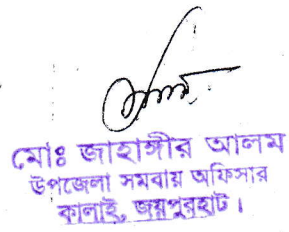 মোঃ জাহাঙ্গীর আলম
উপজেলা সমবায় অফিসার
কালাই, জয়পুরহাট।